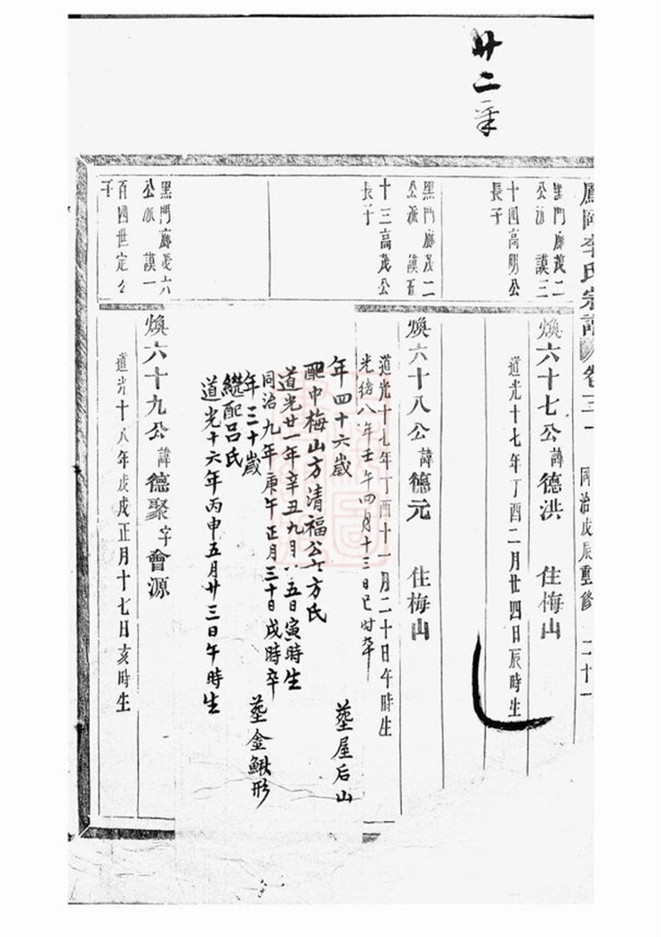 廿二年
鳳岡李氏宗譜 卷三十一 同治戊辰重修 二十一
黑門廊茂二
公派 謨三
十四高明公
長子
煥六十七公諱德洪 住梅山
道光十七年丁酉二月廿四日辰時生
黑門廊茂二
公派 謨百
十三高茂公
長子
煥六十八公諱德元 住梅山
道光十七年丁酉十一月二十日午時生
光緒八年壬午四月十三日巳时卒
年四十六歲 塟屋后山
配中梅山方清福公女方氏
道光廿一年辛丑九月 五日寅時生
同治九年庚午正月三十日戌時卒
年三十歲 塟金鰍形
繼配呂氏
道光十六年丙申五月廿三日午時生
黑門廊茂六
公派 謨一
百四世定公
子
煥六十九公諱德聚字會源
道光十八年戊戌正月十七日亥時生